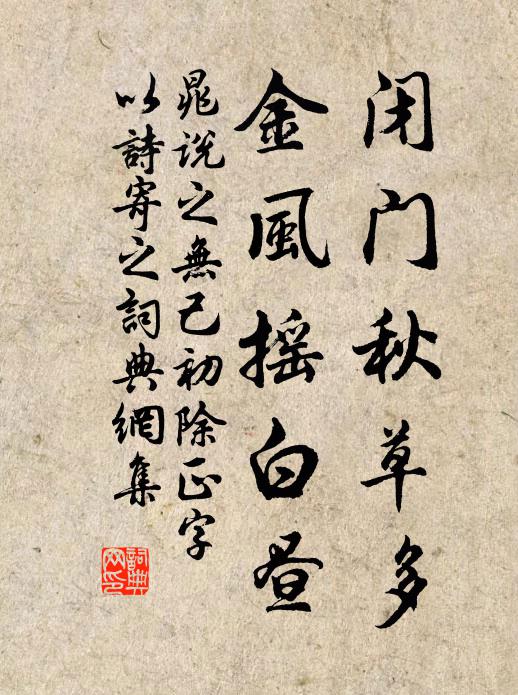 闭门秋草多
金風摇白昼
晁说之無己初除正字
以詩寄之詞典網集
詞典网印